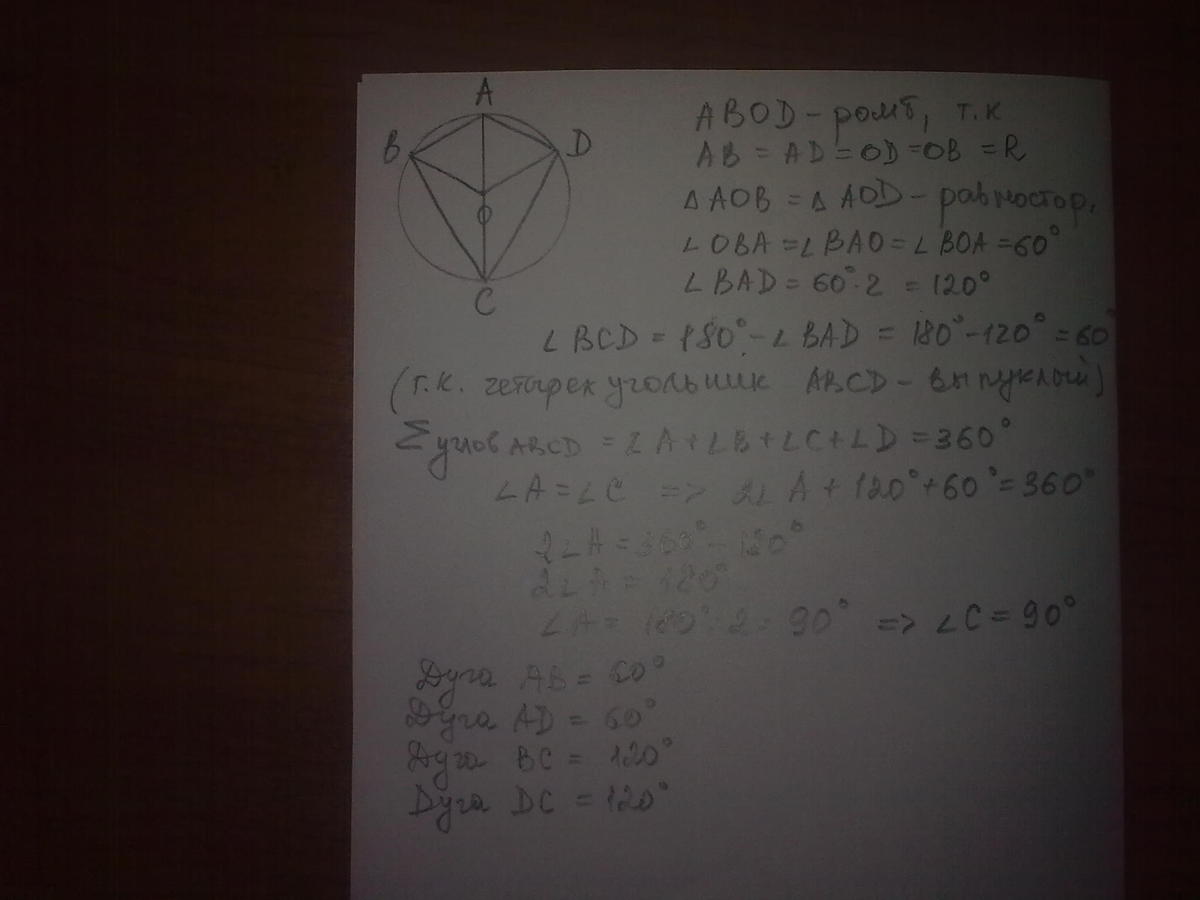 A
B
D
O
C
ABOD - ромб, т.к
AB = AD = OD = OB = R
△AOB = △AOD - равностор.
∠OBA = ∠BAO = ∠BOA = 60°
∠BAD = 60°·2 = 120°
∠BCD = 180° - ∠BAD = 180° - 120° = 60°
(т.к. четырехугольник ABCD - выпуклый)
Σ углов ABCD = ∠A + ∠B + ∠C + ∠D = 360°
∠A = ∠C => 2∠A + 120° + 60° = 360°
2∠A = 360° - 180°
2∠A = 180°
∠A = 180° : 2 = 90° => ∠C = 90°
Дуга AB = 60°
Дуга AD = 60°
Дуга BC = 120°
Дуга DC = 120°